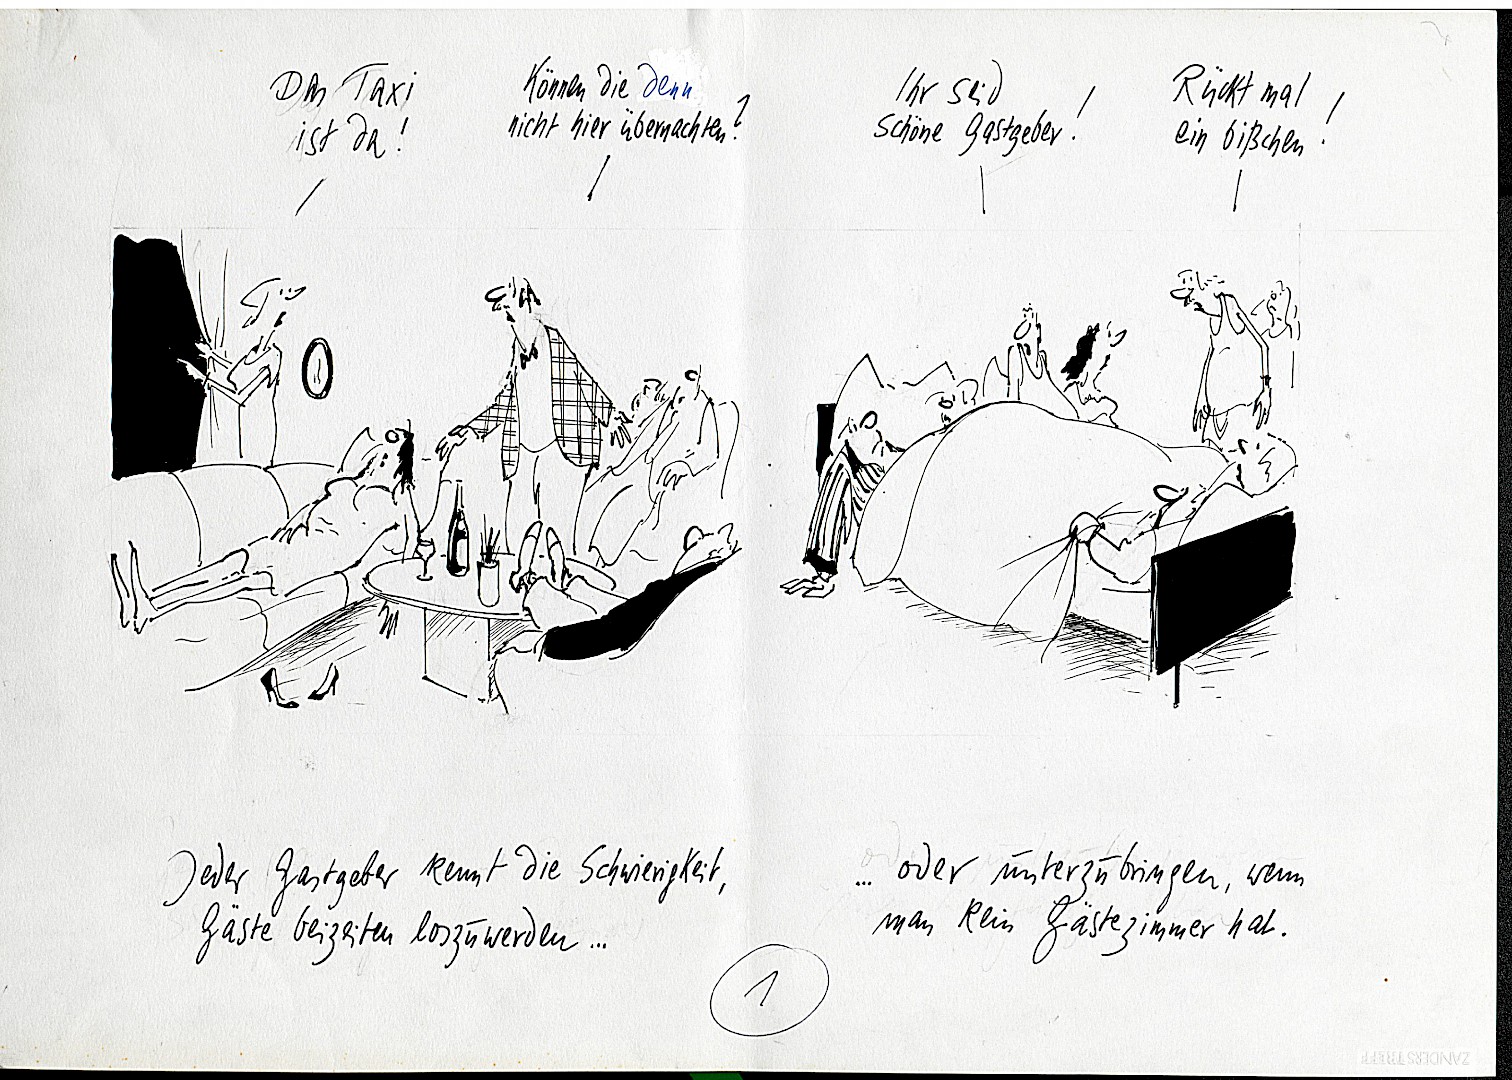 Das Taxi
ist da!
Können die denn
nicht hier übernachten?
Ihr seid
schöne Gastgeber!
Rückt mal
ein bißchen!
Jeder Gastgeber kennt die Schwierigkeit,
Gäste beizeiten loszuwerden...
... oder unterzubringen, wenn
man kein Gästezimmer hat.
1
ZANDERS TREFF